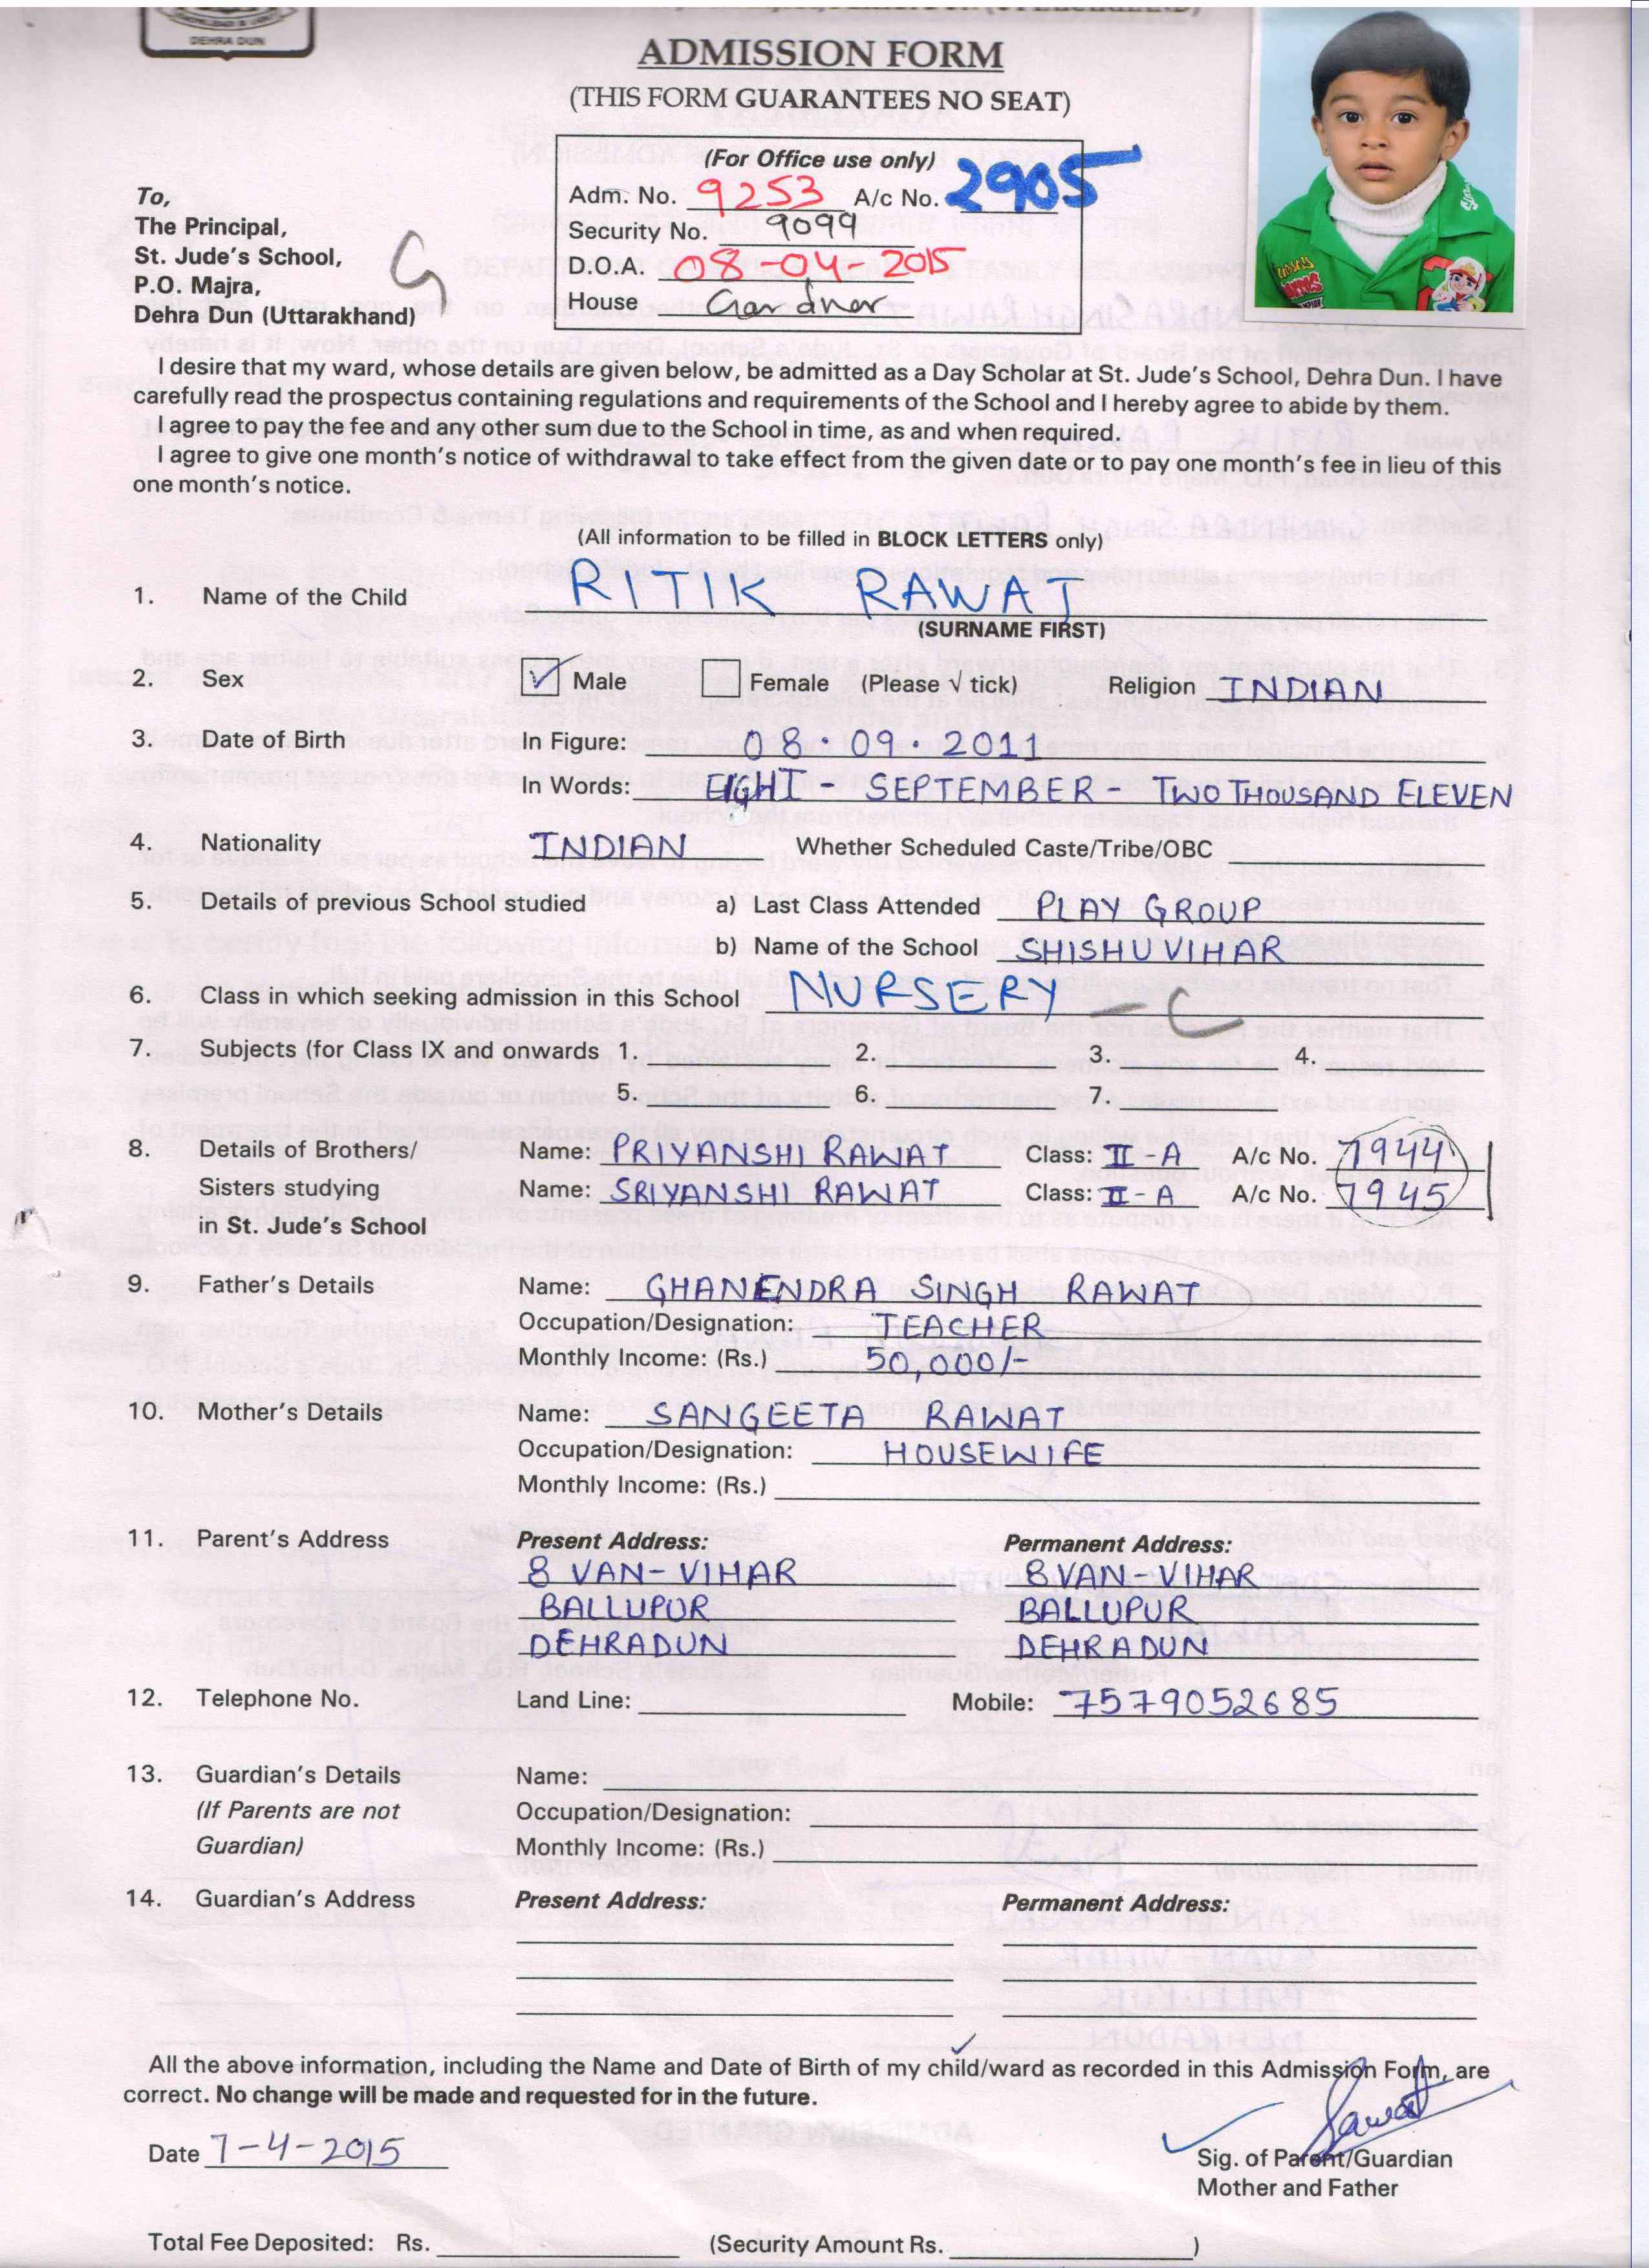 DEHRA DUN
ADMISSION FORM
(THIS FORM GUARANTEES NO SEAT)
(For Office use only)
Adm. No. 9253 A/c No. 2905
Security No. 9099
D.O.A. 08-04-2015
House Gardner
To,
The Principal,
St. Jude's School,
P.O. Majra,
Dehra Dun (Uttarakhand)
G
I desire that my ward, whose details are given below, be admitted as a Day Scholar at St. Jude's School, Dehra Dun. I have
carefully read the prospectus containing regulations and requirements of the School and I hereby agree to abide by them.
I agree to pay the fee and any other sum due to the School in time, as and when required.
I agree to give one month's notice of withdrawal to take effect from the given date or to pay one month's fee in lieu of this
one month's notice.
(All information to be filled in BLOCK LETTERS only)
1. Name of the Child RITIK RAWAT
(SURNAME FIRST)
2. Sex ✓ Male Female (Please √ tick) Religion INDIAN
3. Date of Birth In Figure: 08.09.2011
In Words: EIGHT - SEPTEMBER - TWO THOUSAND ELEVEN
4. Nationality INDIAN Whether Scheduled Caste/Tribe/OBC
5. Details of previous School studied a) Last Class Attended PLAY GROUP
b) Name of the School SHISHU VIHAR
6. Class in which seeking admission in this School NURSERY - C
7. Subjects (for Class IX and onwards 1. 2. 3. 4.
5. 6. 7.
8. Details of Brothers/ Name: PRIYANSHI RAWAT Class: II - A A/c No. 7944
Sisters studying Name: SRIYANSHI RAWAT Class: II - A A/c No. 7945
in St. Jude's School
9. Father's Details Name: GHANENDRA SINGH RAWAT
Occupation/Designation: TEACHER
Monthly Income: (Rs.) 50,000/-
10. Mother's Details Name: SANGEETA RAWAT
Occupation/Designation: HOUSEWIFE
Monthly Income: (Rs.)
11. Parent's Address Present Address: Permanent Address:
8 VAN-VIHAR 8 VAN-VIHAR
BALLUPUR BALLUPUR
DEHRADUN DEHRADUN
12. Telephone No. Land Line: Mobile: 7579052685
13. Guardian's Details Name:
(If Parents are not Occupation/Designation:
Guardian) Monthly Income: (Rs.)
14. Guardian's Address Present Address: Permanent Address:
All the above information, including the Name and Date of Birth of my child/ward as recorded in this Admission Form, are
correct. No change will be made and requested for in the future.
Date 7-4-2015
Rawat
Sig. of Parent/Guardian
Mother and Father
Total Fee Deposited: Rs. (Security Amount Rs. )